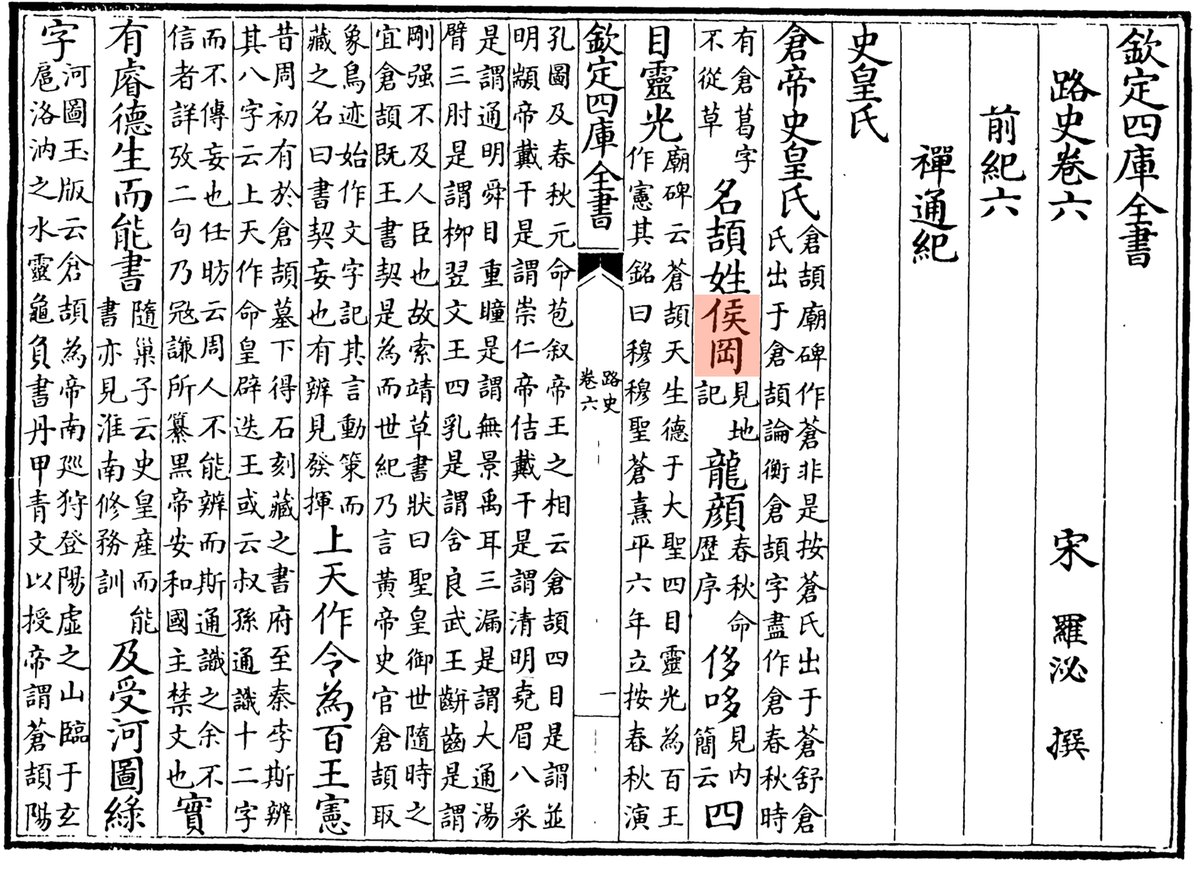 欽定四庫全書
路史卷六 宋 羅泌 撰
前紀六
禪通紀
史皇氏
倉帝史皇氏倉頡廟碑作蒼非是按蒼氏出于蒼舒倉氏出于倉頡論衡倉頡字盡作倉春秋時
有倉葛字不從草名頡姓侯岡見地記龍顏春秋命歴序侈哆見内簡云四
目靈光廟碑云蒼頡天生德于大聖四目靈光為百王作憲其銘曰穆穆聖蒼熹平六年立按春秋演
欽定四庫全書 路史卷六 一
孔圖及春秋元命苞叙帝王之相云倉頡四目是謂並明顓帝戴干是謂崇仁帝佶戴干是謂清明堯眉八采
是謂通明舜目重瞳是謂無景禹耳三漏是謂大通湯臂三肘是謂栁翌文王四乳是謂含良武王齨齒是謂
剛强不及人臣也故索靖草書狀曰聖皇御世隨時之宜倉頡既王書契是為而世紀乃言黄帝史官倉頡取
象鳥迹始作文字記其言動策而藏之名曰書契妄也有辨見發揮上天作令為百王憲
昔周初有於倉頡墓下得石刻藏之書府至秦李斯辨其八字云上天作命皇辟迭王或云叔孫通識十二字
而不傳妄也任昉云周人不能辨而斯通識之余不信者詳攷二句乃冦謙所纂黒帝安和國主禁文也實
有睿德生而能書隨巢子云史皇産而能書亦見淮南修務訓及受河圖綠
字河圖玉版云倉頡為帝南廵狩登陽虚之山臨于玄扈洛汭之水靈龜負書丹甲青文以授帝謂蒼頡陽